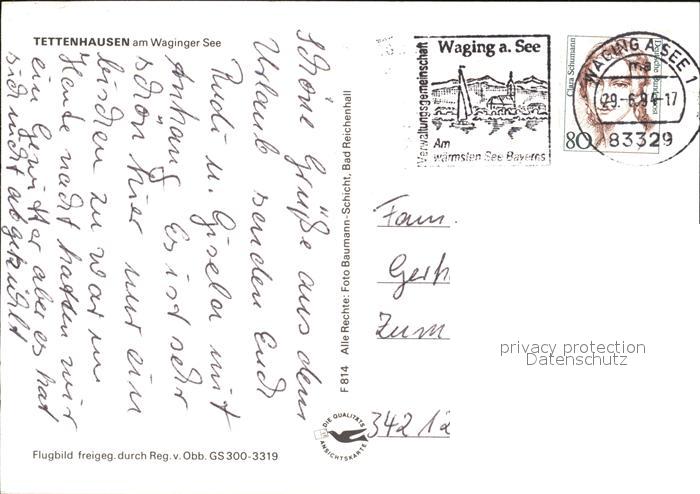 TETTENHAUSEN am Waginger See
Schöne Grüße aus dem
Urlaub senden Euch
Rudi u. Gisela mit
Anhang Es ist sehr
schön hier nur ein
bischen zu warm
Heute nacht hatten wir
ein Gewitter aber es hat
sich nicht abgekühlt
Flugbild freigeg. durch Reg. v. Obb. GS 300-3319
F 814 Alle Rechte: Foto Baumann-Schicht, Bad Reichenhall
DIE QUALITÄTS
ANSICHTSKARTE
Verwaltungsgemeinschaft
Waging a. See
Am
wärmsten See Bayerns
Deutsche Bundespost
Clara Schumann
80
WAGING A. SEE
ma
29.-6.94-17
83329
Fam.
Gerh
Zum
342 12
privacy protection
Datenschutz